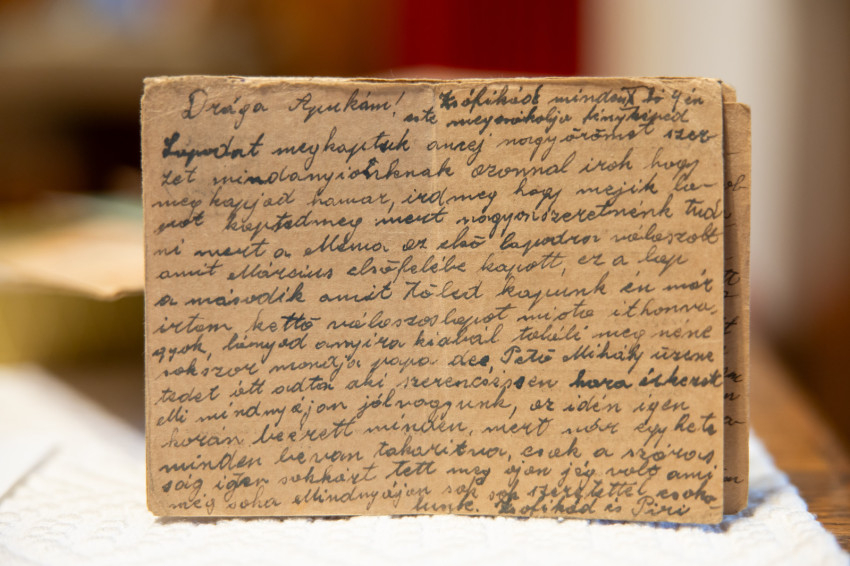 Drága Apukám! Zsófikád minden
este megcsókolja fényképed
Lapodat megkaptuk amej nagy örömet szer
zet mindanyiunknak azonnal irok hogy
meg kapjad hamar, ird meg hogy mejik la-
pot kaptadmeg mert nagyonszeretnénk tud
ni mert a Mama az első lapodra válaszolt
amit Március elsőfelébe kapott, ez a lap
a második amit Tőled kapunk én már
irtam kettő válaszoslapot miota ithonva,
gyok, lányod anyira kiabál
sokszor mondja papa Pető Mihály üzene
tedet ott adta aki szerencsésen haza érkezett
Mi mindnyájan jólvagyunk, az idén igen
korán beerett minden, mert már egyhete
minden bevan takaritva, csak a száraz
ság igen sokkárt tett meg ojan jég volt ami
még soha Mindnyájan sok sok szeretettel csoko
lunk. Zsofikád és Piri